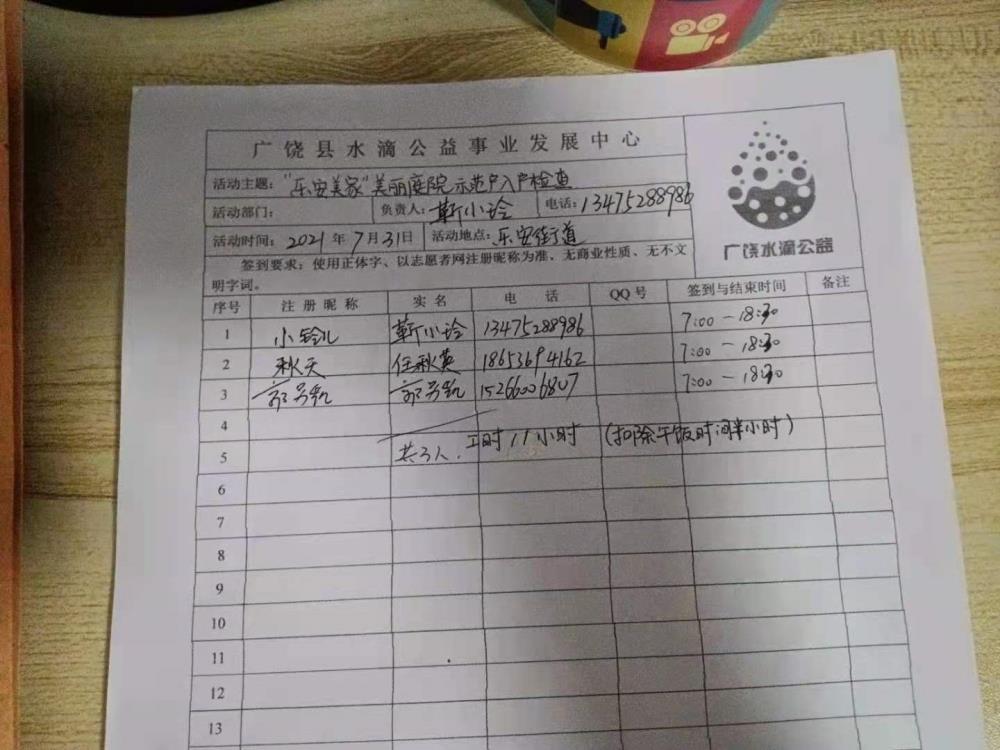 广饶县水滴公益事业发展中心
活动主题："乐安美家"美丽庭院示范户入户检查
活动部门： 负责人：靳小玲 电话：13475288986
活动时间：2021年7月31日 活动地点：乐安街道
广饶水滴公益
签到要求：使用正体字、以志愿者网注册昵称为准、无商业性质、无不文
明字词。
序号 注册昵称 实名 电话 QQ号 签到与结束时间 备注
1 小铃儿 靳小玲 13475288986 7:00-18:30
2 秋天 任秋英 18653694162 7:00-18:30
3 15266006807 7:00-18:30
4
5 共3人. 工时11小时 (扣除午饭时间半小时)
6
7
8
9
10
11
12
13